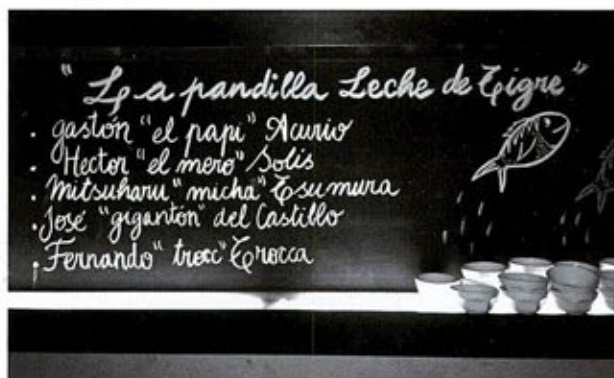 "La pandilla Leche de Tigre"
. gastón "el papi" Acurio
. Hector "el mero" Solis
. Mitsuharu "micha" Tsumura
. José "gigantón" del Castillo
. Fernando "trocc" Trocca